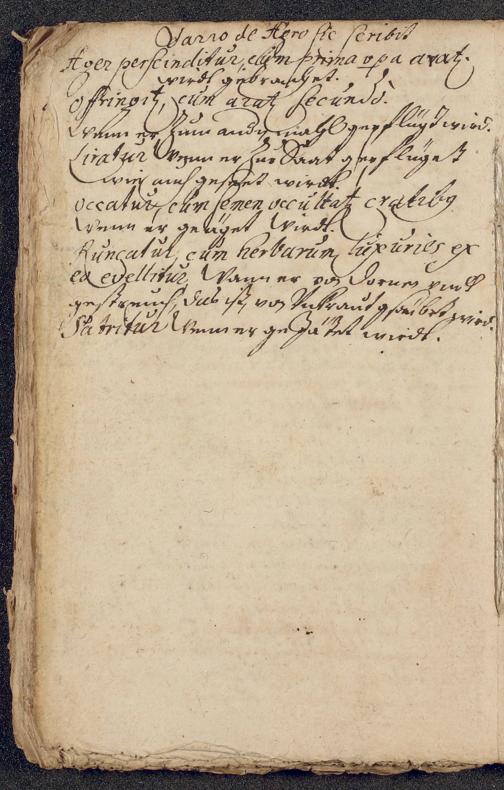 Varro de Agro sic scribit
Ager perscinditur, cum prima opa arat.
wirdt gebrachet.
Offringit, cum arat secundò.
Wenn er zum andn mahl gepflügt wird.
Liratur Wenn er zur Saat gepflüget
wie auch geseet wirdt.
occatur, cum semen occultat cratiby
Wenn er geeget wirdt.
Runcatur, cum herbarum luxuries ex
ea evellitur, Wann er von Dornen vndt
gestreuch, das ist, von Vnkraut wird.
Sa ritur Wenn er gejätet wirdt.